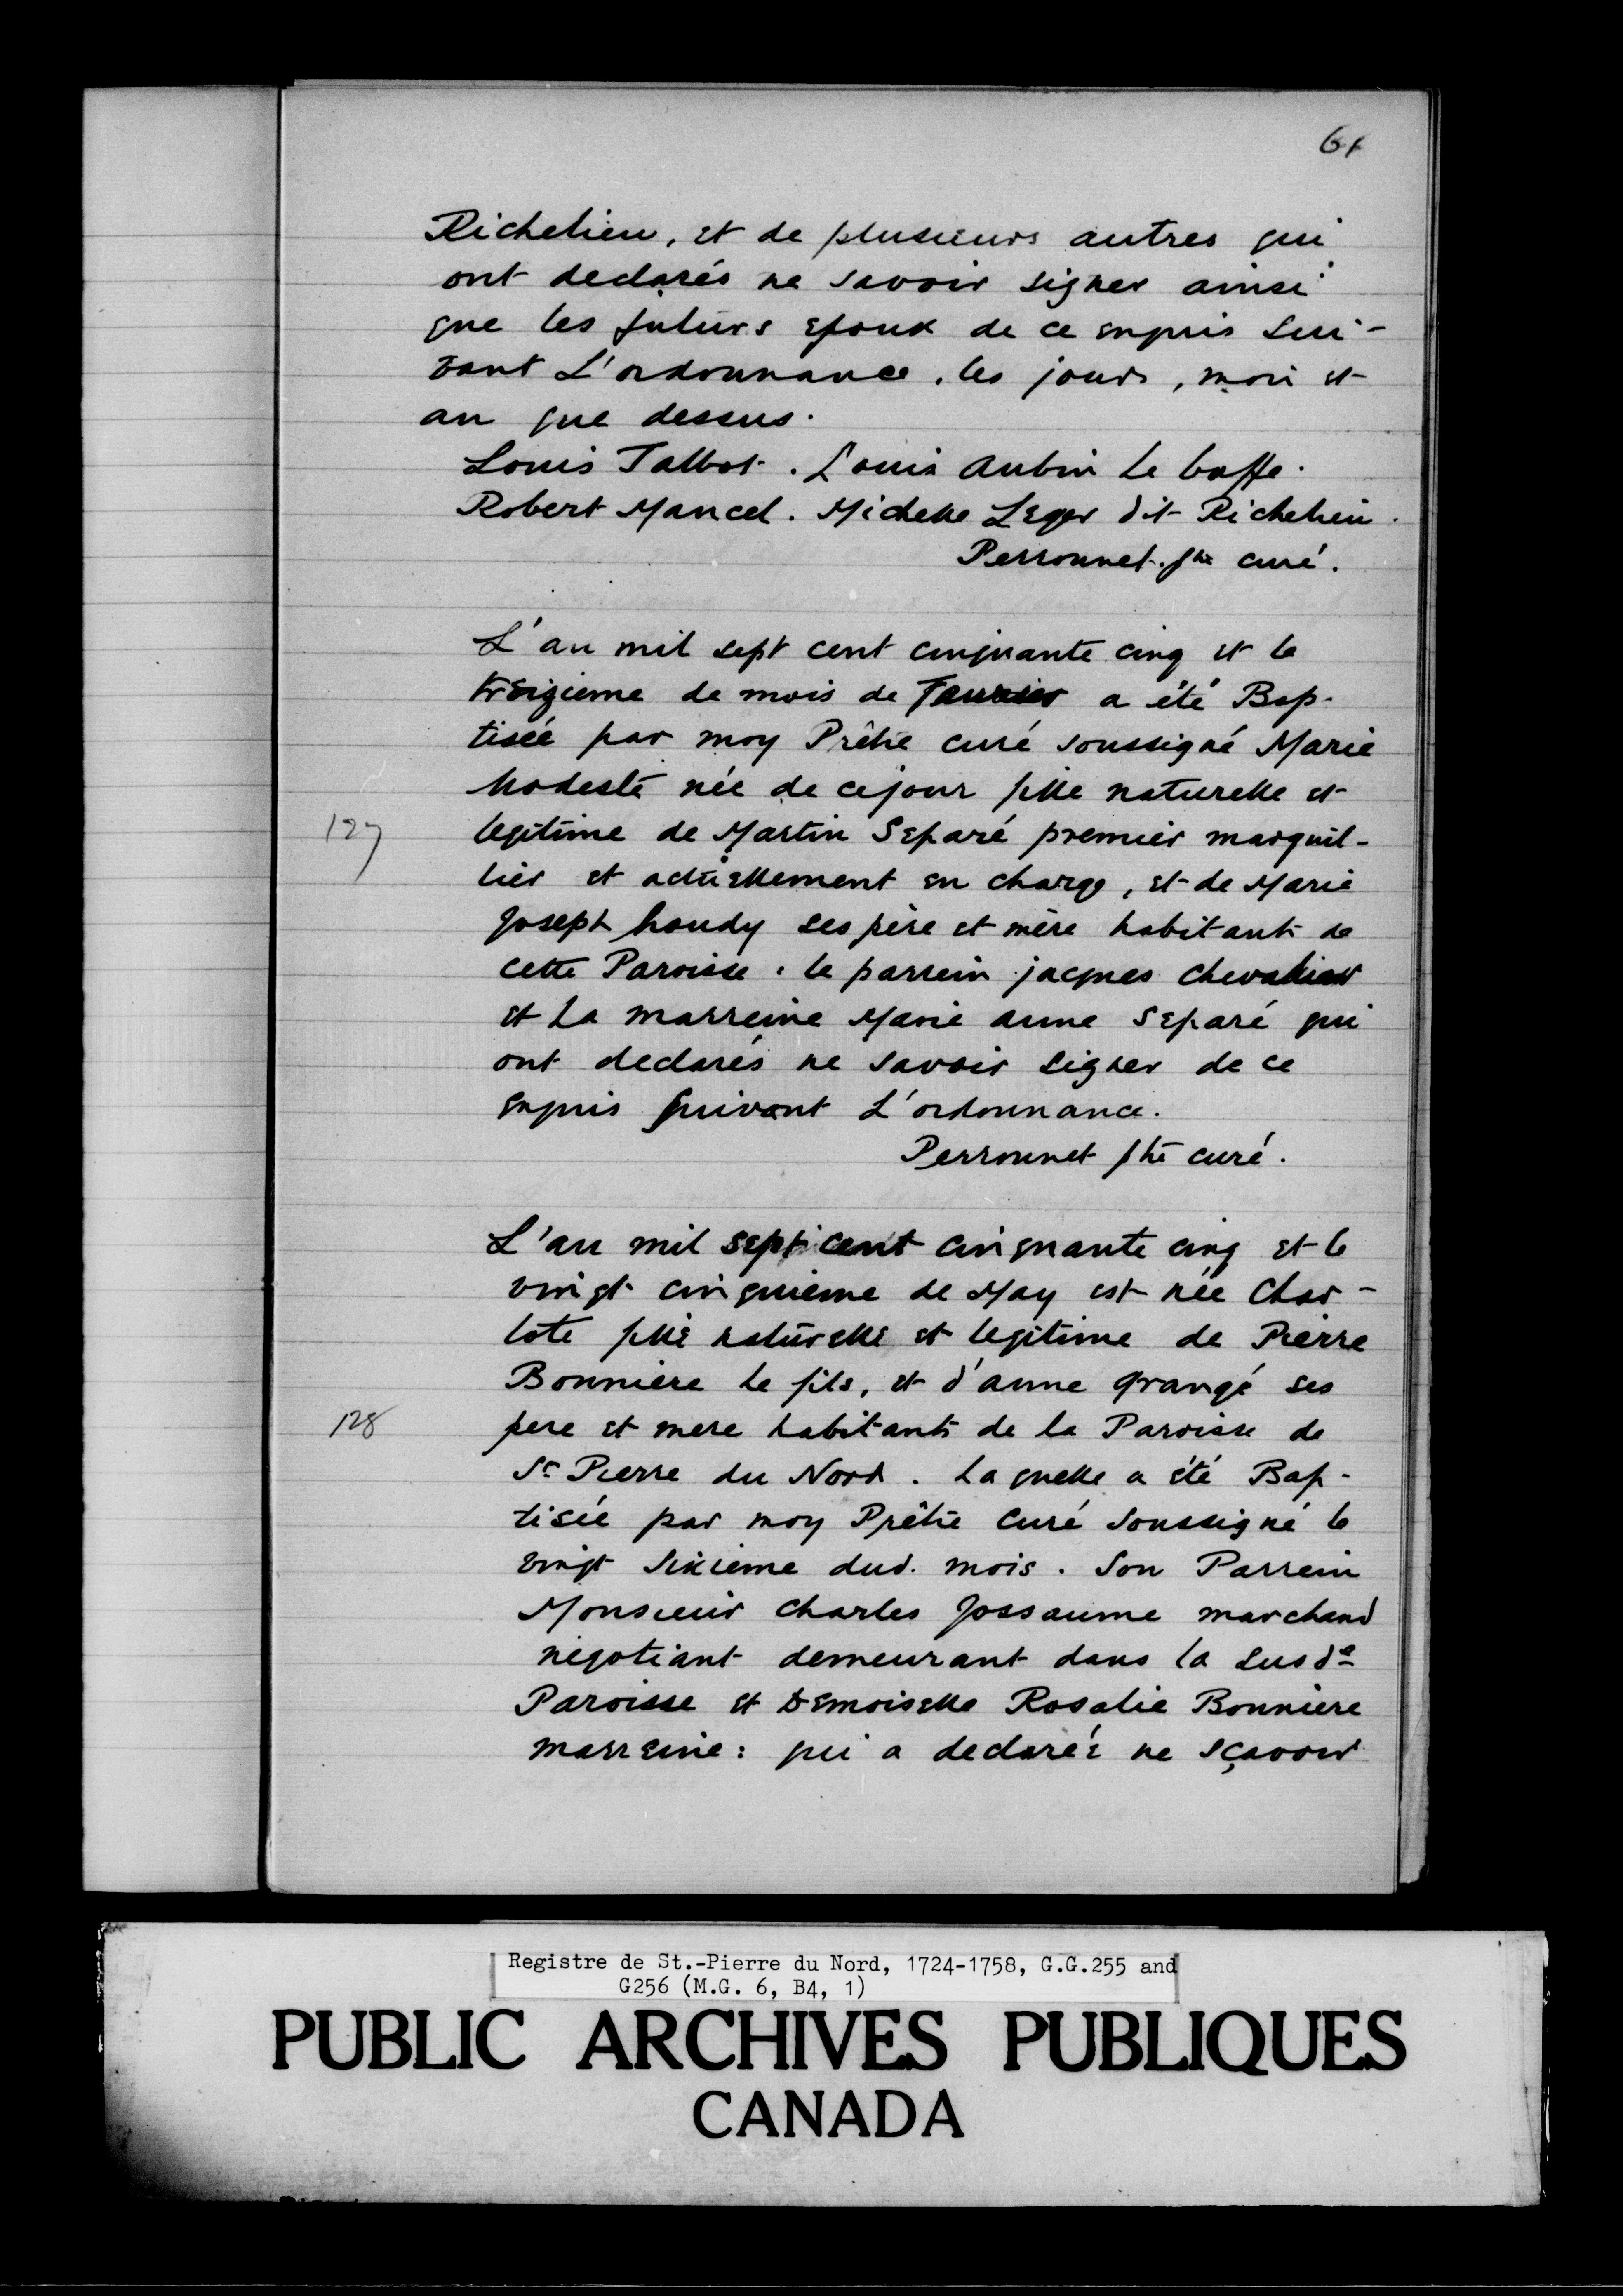 61
Richelieu, et de plusieurs autres qui
ont declarés ne savoir signer ainsi
que les futurs epoux de ce enquis sui-
vant L'ordonnance. les jours, mois et
an que dessus.
Louis Talbot. Louis Aubin le buffe.
Robert Mancel. Michelle Leger dit Richelieu.
Perronnet. ptre curé.
L'an mil sept cent cinquante cinq et le
treizieme de mois de Fevrier a été Bap-
tisée par moy Prêtre curé soussigné Marie
Modeste née de ce jour fille naturelle et
127
legitime de Martin Separé premier marguil-
lier et actuellement en charge, et de Marie
Joseph houdy ses père et mère habitants de
cette Paroisse. le parrein jacques chevalier
et La marreine Marie anne Separé qui
ont declarés ne savoir signer de ce
enquis suivant L'ordonnance.
Perronnet ptre curé.
L'an mil sept cent cinquante cinq et le
vingt cinquieme de May est née Char-
lote fille naturelle et legitime de Pierre
Bonniere le fils, et d'anne grangé ses
128
pere et mere habitants de la Paroisse de
St Pierre du Nord. La quelle a été Bap-
tisée par moy Prêtre Curé soussigné le
vingt sixieme dud. mois. Son Parrein
Monsieur Charles Jossaume marchand
negotiant demeurant dans la susde
Paroisse et Demoiselle Rosalie Bonniere
marreine: qui a declarée ne sçavoir
Registre de St.-Pierre du Nord, 1724-1758, G.G.255 and
G256 (M.G. 6, B4, 1)
PUBLIC ARCHIVES PUBLIQUES
CANADA